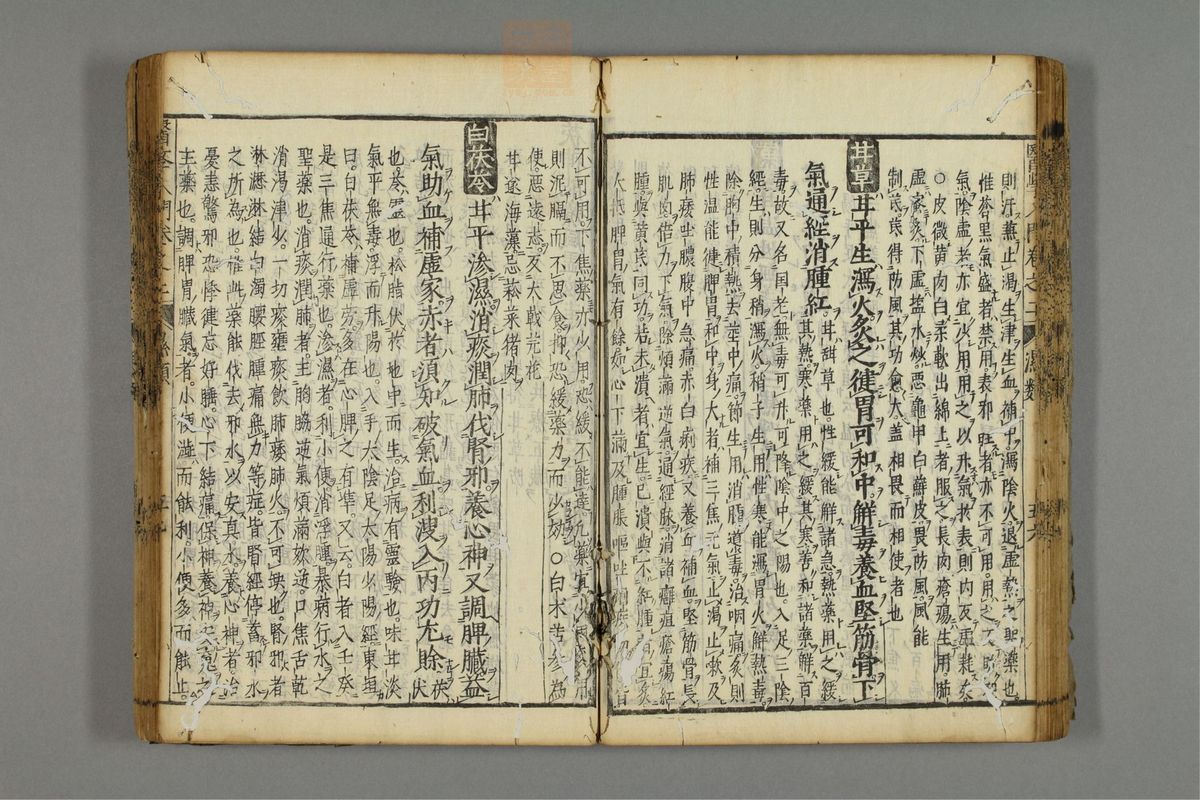 則汗兼止渴生津生血補中瀉陰火退虛熱之聖藥也
惟蒼黑氣盛者禁用表邪旺者亦不可用用之反助
氣陰虛者亦宜少用用之以升氣於表則內反虛耗矣
○皮微黃肉白柔軟出綿上者服之長肉瘡瘍生用肺
虛蜜炙下虛塩水炒惡龜甲白蘚皮畏防風風能
制黃茋得防風其功愈大蓋相畏而相使者也
甘草 甘平生瀉火炙之健胃可和中解毒養血堅筋骨下
氣通經消腫紅 甘甜草也性緩能解諸急熱藥用之緩
其熱寒藥用之緩其寒善和諸藥解百
毒故又名国老無毒可升可降陰中之陽也入足三陰
經生則分身梢瀉火梢子生用性寒能瀉胃火解熱毒
除胸中積熱去莖中痛節生用消腫導毒治咽痛炙則
性温能健脾胃和中身大者補三焦元氣止渴止嗽及
肺痿吐膿腹中急痛赤白痢疾又養血補血堅筋骨長
肌肉倍力下氣除煩滿逆氣通經脉消諸癰疽瘡瘍紅
腫與黃茋同功若未潰者宜生已潰與不紅腫者宜炙
大抵脾胃氣有餘如心下滿及腫脹嘔吐痢疾初作皆
不可用下焦藥亦少用恐緩不能達凢藥宜少
則泥膈而不思食抑恐緩藥力而少効○白术苦參為
使惡遠志反大戟芫花
甘遂海藻忌菘菜猪肉
白茯苓 甘平滲濕消痰潤肺伐腎邪養心神又調脾臟益
氣助血補虛家赤者須知破氣血利溲入丙功尤賒 茯伏
也苓灵也松脂伏於地中而生治病有靈驗也味甘淡
氣平無毒浮而升陽也入手太陰足太陽少陽經東垣
曰白茯苓補虛勞多在心脾之有準又云白者入壬癸
是三焦通行藥也滲濕者利小便消浮腫暴病行水之
聖藥也消痰潤肺者主胸脇逆氣煩滿欬逆口焦舌乾
消渴津少一切痰壅痰飲肺痿肺火不可缺也腎邪者
淋瀝淋結白濁腰脛腫痛無力等症皆腎經停蓄邪水
之所為也惟此藥能伐去邪水以安真水養心神者治
憂恚驚邪恐悸健忘好睡心下結痛保神養神之
主藥也調脾胃臟氣者小便澁而能利小便多而能止